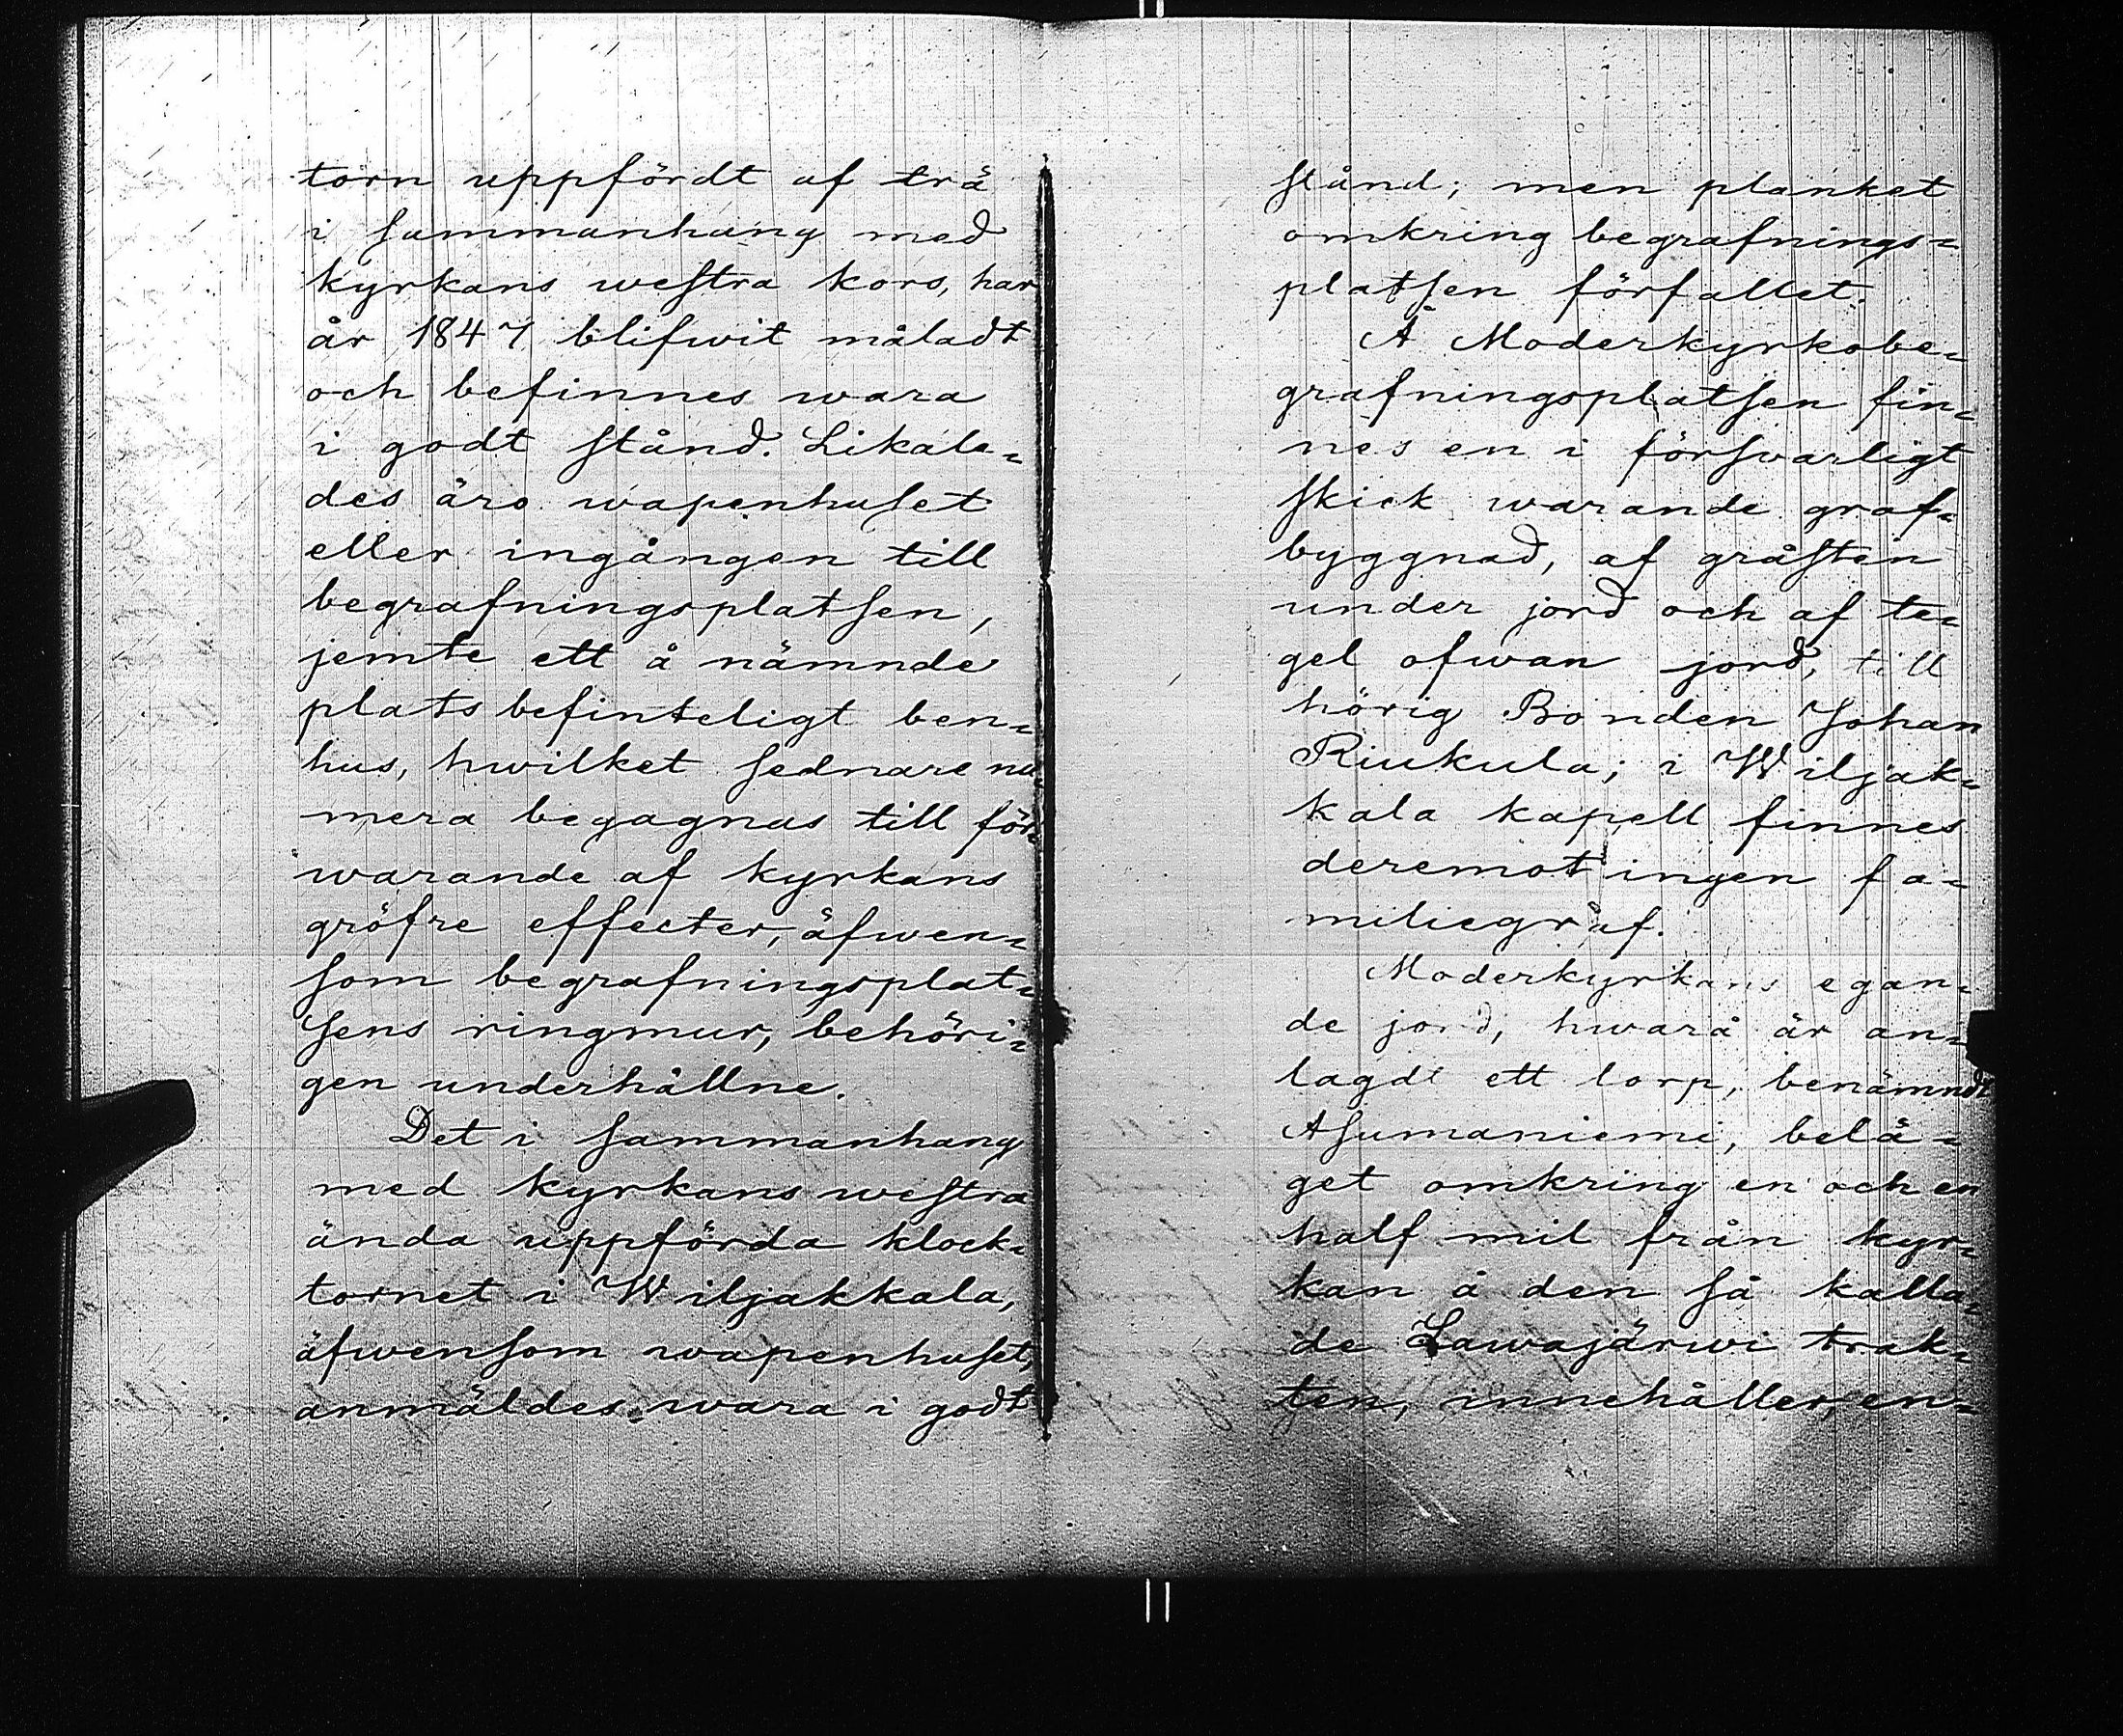 torn uppfördt af trä
i sammanhang med
kyrkans westra kors, har
år 1847 blifwit måladt
och befinnes wara
i godt stånd. Likale-
des äro wapenhuset
eller ingången till
begrafningsplatsen,
jemte ett å nämnde
plats befinteligt ben-
hus, hwilket sednare nu-
mera begagnas till för-
warande af kyrkans
gröfre effecter, äfwen-
som begrafningsplat-
sens ringmur, behöri-
gen underhållne.
Det i sammanhang
med kyrkans westra
ända uppförda klock-
tornet i Wiljakkala,
äfwensom wapenhuset,
anmäldes wara i godt
stånd; men planket
omkring begrafnings-
platsen förfallet.
Å Moderkyrkobe-
grafningsplatsen fin-
nes en i försvarligt
skick warande graf-
byggnad, af gråsten
under jord och af te-
gel ofwan jord, till
hörig Bonden Johan
Riukula; i Wiljak-
kala kapell finnes
deremot ingen fa-
miliegraf.
Moderkyrkans egan-
de jord, hwarå är an-
lagdt ett torp, benämndt
Asumaniemi, belä-
get omkring en och en
half mil från kyr-
kan å den så kalla-
de Lawajärwi trak-
ten, innehåller, en-